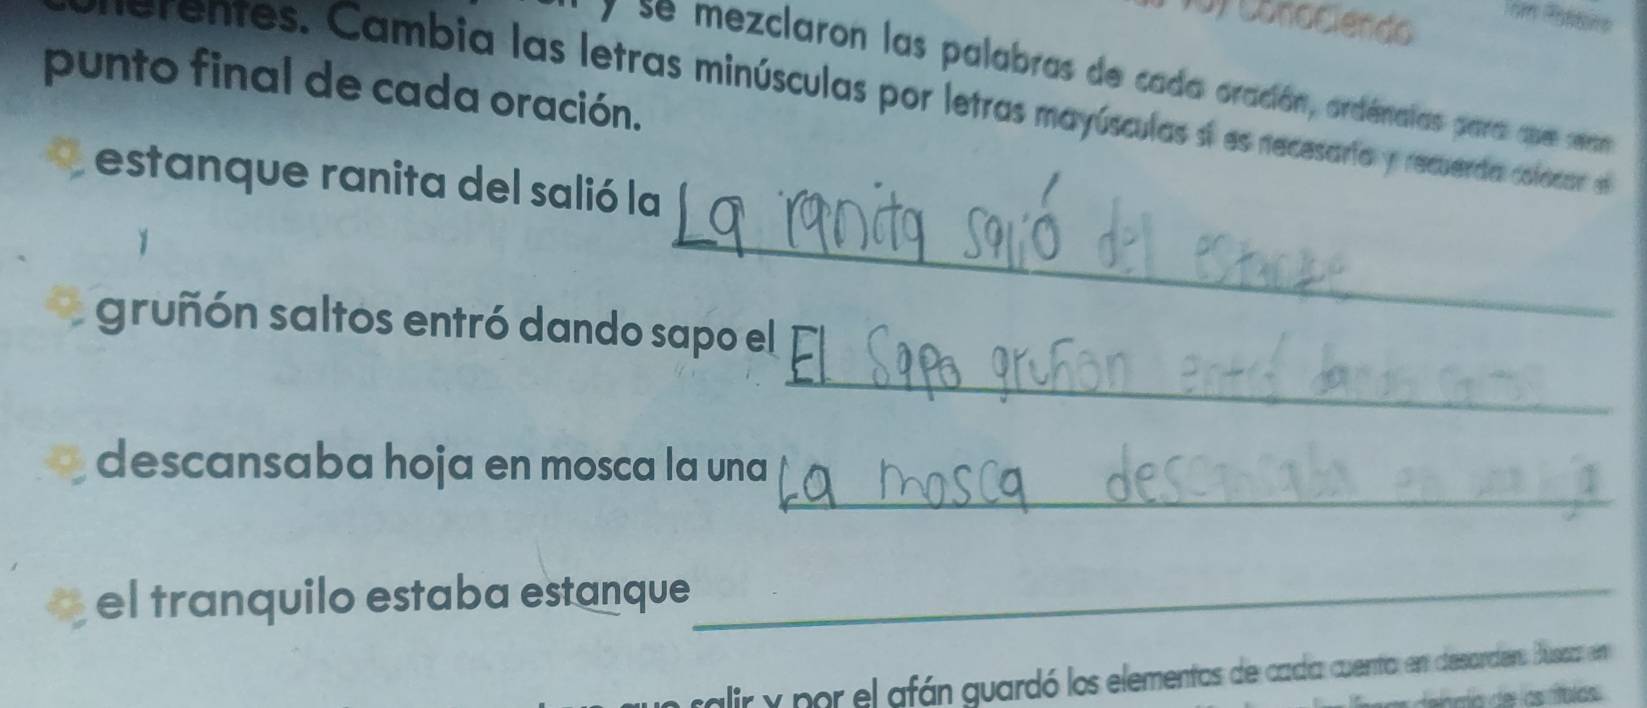 y se mezclaron las palabras de cada oración, ordénalas para que sean
coherentes. Cambia las letras minúsculas por letras mayúsculas si es necesario y recuerda colocar el
punto final de cada oración.
estanque ranita del salió la La ranita salió del estanque
gruñón saltos entró dando sapo el El Sapo gruñon entró dando
descansaba hoja en mosca la una La mosca descansaba en
el tranquilo estaba estanque
salir y por el afán guardó los elementos de cada cuento en desorden. Busca en